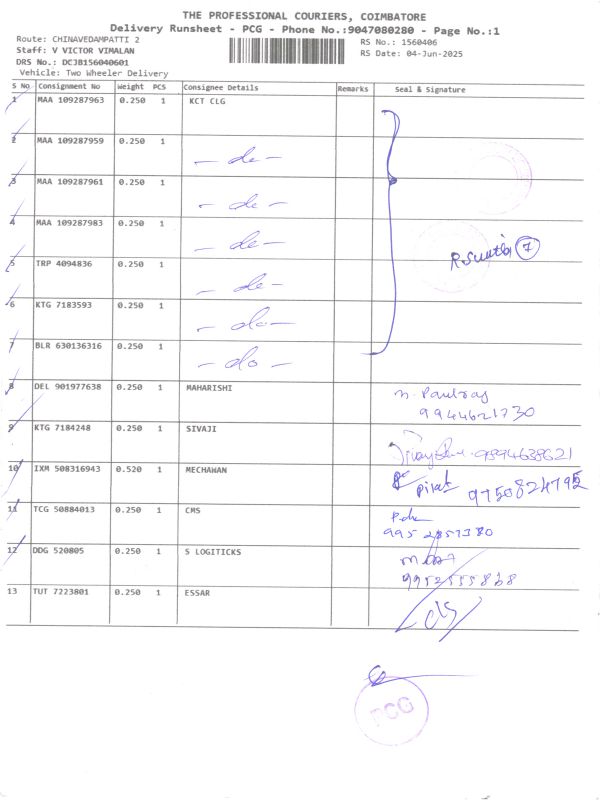 THE PROFESSIONAL COURIERS, COIMBATORE
Delivery Runsheet - PCG - Phone No.:9047080280 - Page No.:1
Route: CHINAVEDAMPATTI 2
RS No.: 1560406
Staff: V VICTOR VIMALAN
RS Date: 04-Jun-2025
DRS No.: DCJB156040601
Vehicle: Two Wheeler Delivery
S No Consignment No Weight PCS Consignee Details Remarks Seal & Signature
1 MAA 109287963 0.250 1 KCT CLG
2 MAA 109287959 0.250 1 - do -
3 MAA 109287961 0.250 1 - do -
4 MAA 109287983 0.250 1 - do -
5 TRP 4094836 0.250 1 - do -
6 KTG 7183593 0.250 1 - do -
7 BLR 630136316 0.250 1 - do -
7
8 DEL 901977638 0.250 1 MAHARISHI
9944621730
9 KTG 7184248 0.250 1 SIVAJI
9894638621
10 IXM 508316943 0.520 1 MECHAWAN
9750824795
11 TCG 50884013 0.250 1 CMS
12 DDG 520805 0.250 1 S LOGITICKS
13 TUT 7223801 0.250 1 ESSAR
PCG